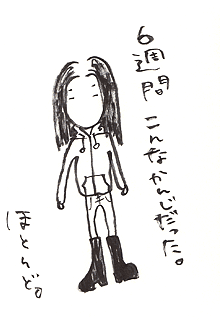 6週間こんなかんじだった。
ほとんど。